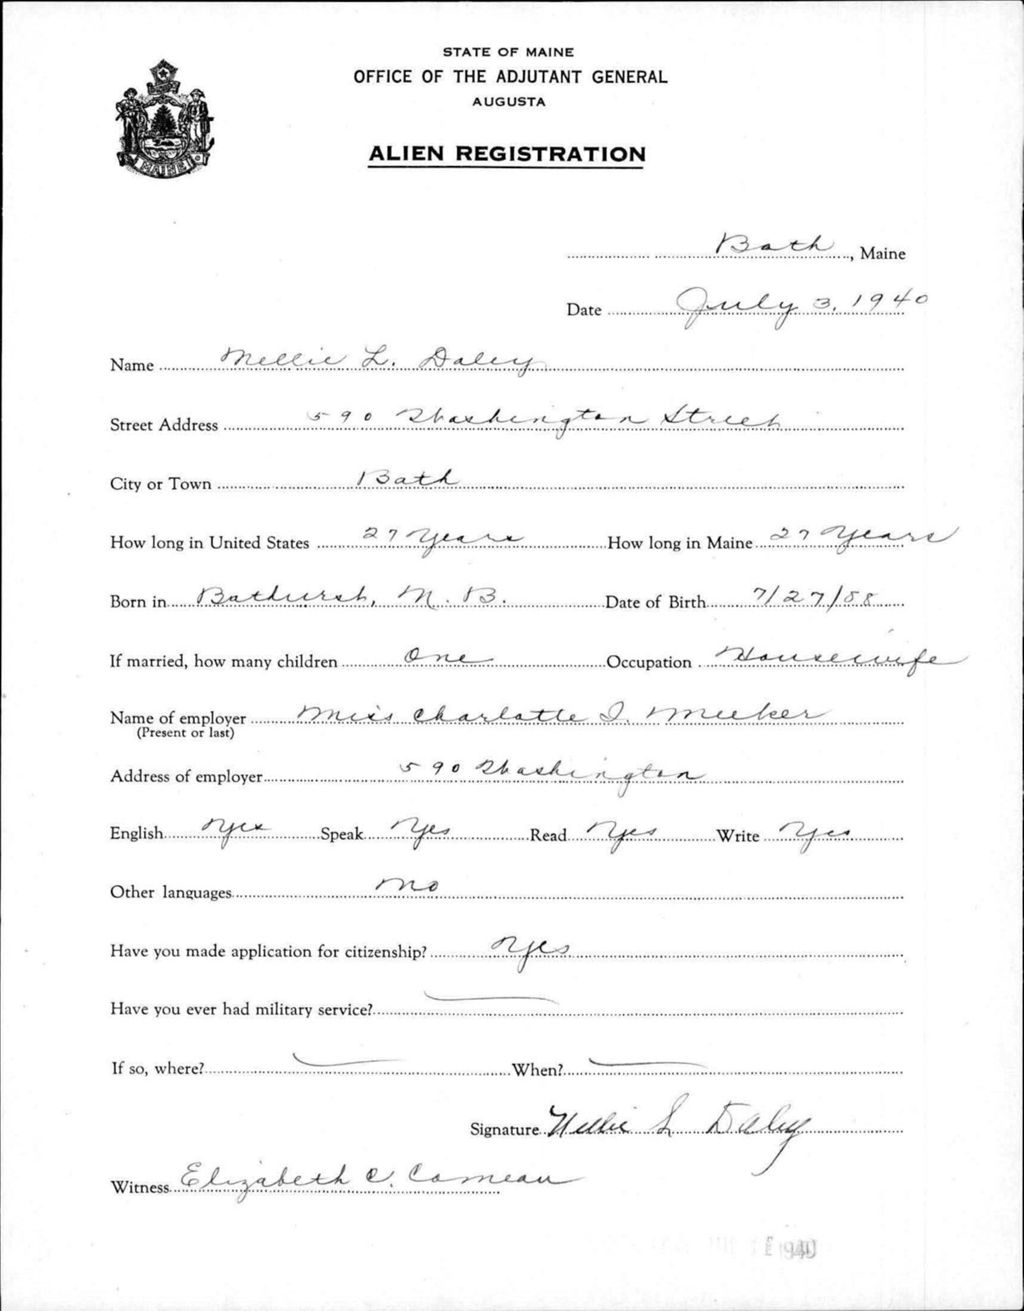 STATE OF MAINE
OFFICE OF THE ADJUTANT GENERAL
AUGUSTA
ALIEN REGISTRATION
MAINE
Bath, Maine
Date July 3, 1940
Name Nellie L. Daley
Street Address 590 Washington Street
City or Town Bath
How long in United States 27 Years How long in Maine 27 Years
Born in Bathurst, N. B. Date of Birth 7/27/88
If married, how many children One Occupation Housewife
Name of employer Miss Charlotte I. Meeker
(Present or last)
Address of employer 590 Washington
English Yes Speak Yes Read Yes Write Yes
Other languages No
Have you made application for citizenship? Yes
Have you ever had military service?
If so, where? When?
Signature Nellie L Daley
Witness Elizabeth C. Comeau
1940